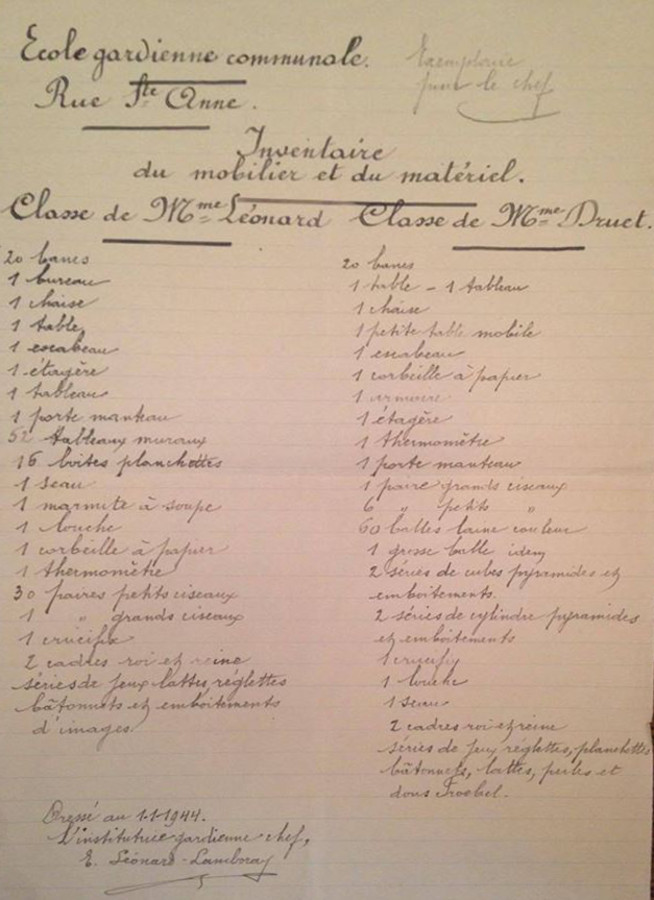 Ecole gardienne communale.
Exemplaire
pour le chef
Rue Ste Anne.
Inventaire
du mobilier et du matériel.
Classe de Mme Léonard
20 bancs
1 bureau
1 chaise
1 table
1 escabeau
1 étagère
1 tableau
1 porte manteau
52 tableaux muraux
16 boîtes planchettes
1 seau
1 marmite à soupe
1 louche
1 corbeille à papier
1 thermomètre
30 paires petits ciseaux
1 " grands ciseaux
1 crucifix
2 cadres roi et reine
séries de jeux lattes, réglettes
bâtonnets et emboîtements
d'images.
Classe de Mme Druet.
20 bancs
1 table - 1 tableau
1 chaise
1 petite table mobile
1 escabeau
1 corbeille à papier
1 armoire
1 étagère
1 thermomètre
1 porte manteau
1 paire grands ciseaux
6 " petits "
60 balles laine couleur
1 grosse balle idem
2 séries de cubes pyramides et
emboîtements.
2 séries de cylindre pyramides
et emboîtements
1 crucifix
1 louche
1 seau
2 cadres roi et reine
séries de jeux réglettes, planchettes
bâtonnets, lattes, perles et
dons Froebel.
Dressé au 1-1-1944.
L'institutrice gardienne chef,
E. Léonard-Lambray